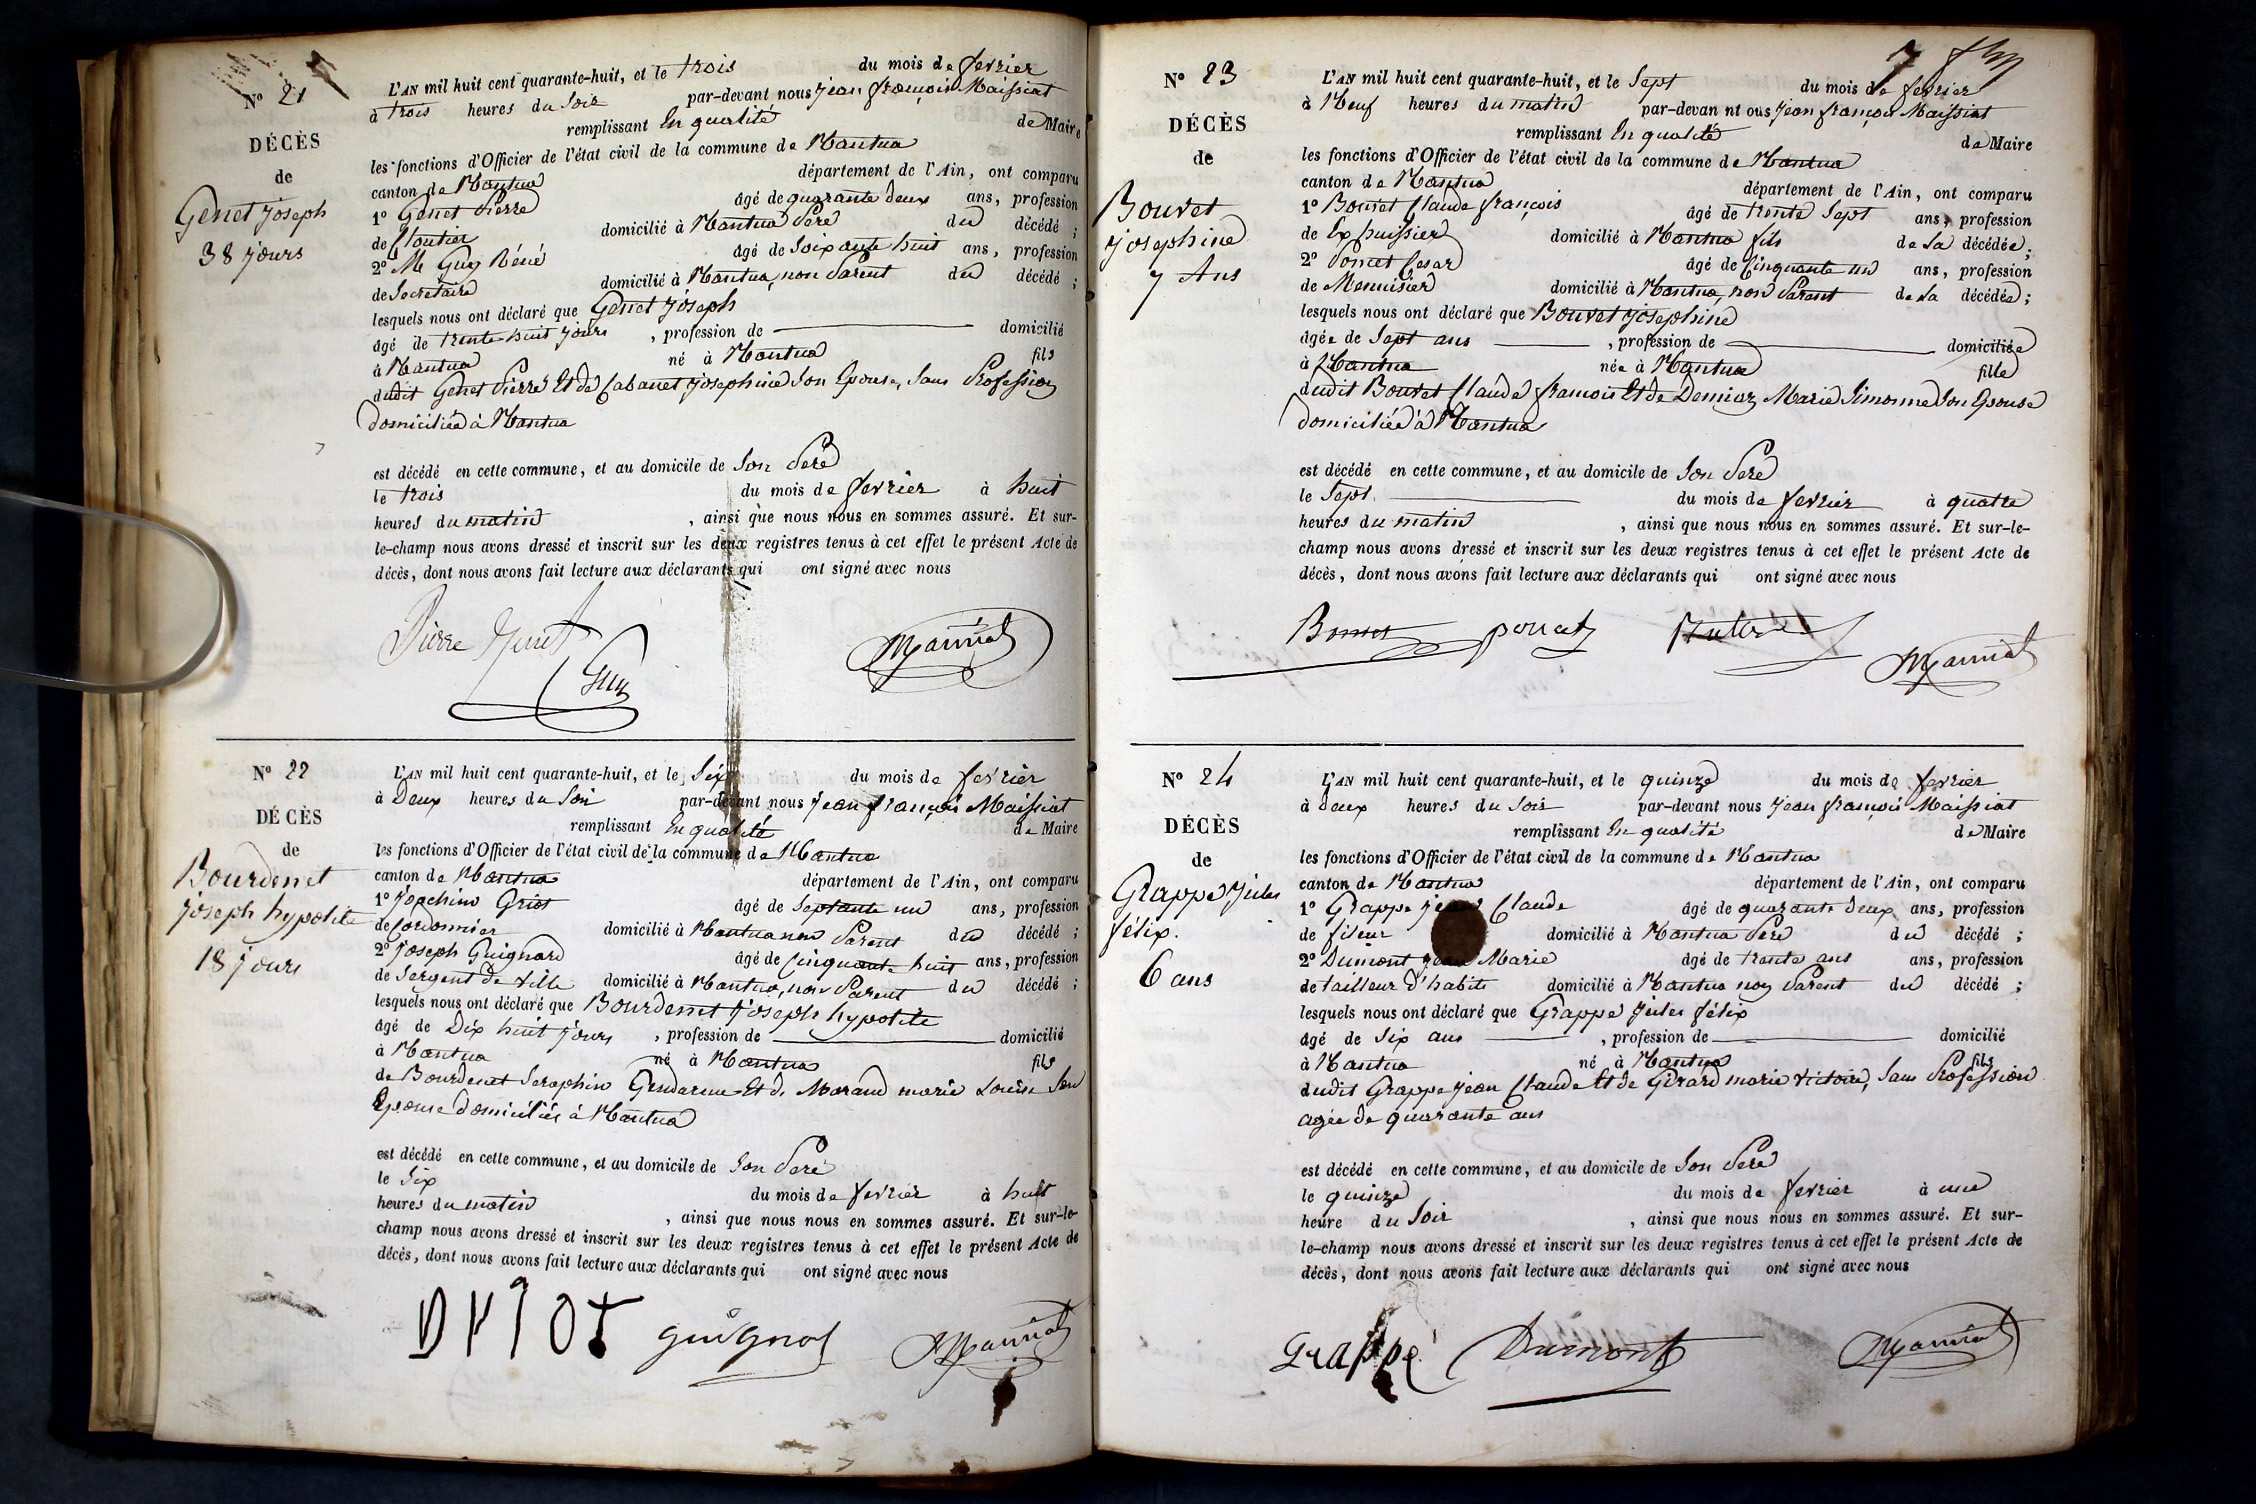 N° 21
DÉCÈS
de
Genet joseph
38 jours
L'AN mil huit cent quarante-huit, et le trois du mois de fevrier
à trois heures du Soir par-devant nous jean françois Maissiat
remplissant En qualité de Maire
les fonctions d'Officier de l'état civil de la commune de Nantua
canton de Nantua département de l'Ain, ont comparu
1° Genet Pierre âgé de quarante deux ans, profession
de Cloutier domicilié à Nantua Pere du décédé ;
2° M Guy Réné âgé de Soixante huit ans, profession
de Secrétaire domicilié à Nantua, non Parent du décédé ;
lesquels nous ont déclaré que Genet joseph
âgé de trente huit jours , profession de domicilié
à Nantua né à Nantua fils
dudit Genet Pierre Et de Cabanet josephine Son Epouse, Sans Profession
domiciliée à Nantua
est décédé en cette commune, et au domicile de Son Pere
le trois du mois de fevrier à huit
heures du matin , ainsi que nous nous en sommes assuré. Et sur-
le-champ nous avons dressé et inscrit sur les deux registres tenus à cet effet le présent Acte de
décès, dont nous avons fait lecture aux déclarants qui ont signé avec nous
Pierre Genet
Guy
Maissiat
N° 22
DÉCÈS
de
Bourdenet
joseph hypolite
18 jours
L'AN mil huit cent quarante-huit, et le Six du mois de fevrier
à Deux heures du Soir par-devant nous jean françois Maissiat
remplissant En qualité de Maire
les fonctions d'Officier de l'état civil de la commune de Nantua
canton de Nantua département de l'Ain, ont comparu
1° Joachim Griot âgé de Septante un ans, profession
de Cordonnier domicilié à Nantua non Parent du décédé ;
2° Joseph Guignard âgé de Cinquante huit ans, profession
de Sergent de Ville domicilié à Nantua, non Parent du décédé ;
lesquels nous ont déclaré que Bourdenet Joseph hypolite
âgé de Dix huit jours , profession de domicilié
à Nantua né à Nantua fils
de Bourdenet Seraphin Gendarme Et de Morand marie Louise Son
Epouse domiciliés à Nantua
est décédé en cette commune, et au domicile de Son Pere
le Six du mois de fevrier à huit
heures du matin , ainsi que nous nous en sommes assuré. Et sur-le-
champ nous avons dressé et inscrit sur les deux registres tenus à cet effet le présent Acte de
décès, dont nous avons fait lecture aux déclarants qui ont signé avec nous
guignard
Maissiat
N° 23
DÉCÈS
de
Bouvet
josephine
7 Ans
7
L'AN mil huit cent quarante-huit, et le Sept du mois de fevrier
à Neuf heures du matin par-devan nt ous jean françois Maissiat
remplissant En qualité de Maire
les fonctions d'Officier de l'état civil de la commune de Nantua
canton de Nantua département de l'Ain, ont comparu
1° Bouvet Claude françois âgé de trente Sept ans, profession
de Ex huissier domicilié à Nantua fils de la décédée ;
2° Poncet Cesar âgé de Cinquante un ans, profession
de Menuisier domicilié à Nantua, non Parent de la décédée ;
lesquels nous ont déclaré que Bouvet josephine
âgée de Sept ans , profession de domiciliée
à Nantua née à Nantua fille
dudit Bouvet Claude françois Et de Marie Simonne Son Epouse
domiciliée à Nantua
est décédé en cette commune, et au domicile de Son Pere
le Sept du mois de fevrier à quatre
heures du matin , ainsi que nous nous en sommes assuré. Et sur-le-
champ nous avons dressé et inscrit sur les deux registres tenus à cet effet le présent Acte de
décès, dont nous avons fait lecture aux déclarants qui ont signé avec nous
Bouvet poncet
Maissiat
N° 24
DÉCÈS
de
Grappe Jules
félix.
6 ans
L'AN mil huit cent quarante-huit, et le quinze du mois de fevrier
à deux heures du Soir par-devant nous jean françois Maissiat
remplissant En qualité de Maire
les fonctions d'Officier de l'état civil de la commune de Nantua
canton de Nantua département de l'Ain, ont comparu
1° Grappe jean Claude âgé de quarante deux ans, profession
de fileur domicilié à Nantua Pere du décédé ;
2° Dumont jean Marie âgé de trente ans ans, profession
de tailleur d'habits domicilié à Nantua non Parent du décédé ;
lesquels nous ont déclaré que Grappe Jules félix
âgé de Six ans , profession de domicilié
à Nantua né à Nantua fils
dudit Grappe jean Claude Et de Girard marie Victoire, Sans Profession
agée de quarante ans
est décédé en cette commune, et au domicile de Son Pere
le quinze du mois de fevrier à une
heure du Soir , ainsi que nous nous en sommes assuré. Et sur-
le-champ nous avons dressé et inscrit sur les deux registres tenus à cet effet le présent Acte de
décès, dont nous avons fait lecture aux déclarants qui ont signé avec nous
Grappe Dumont
Maissiat